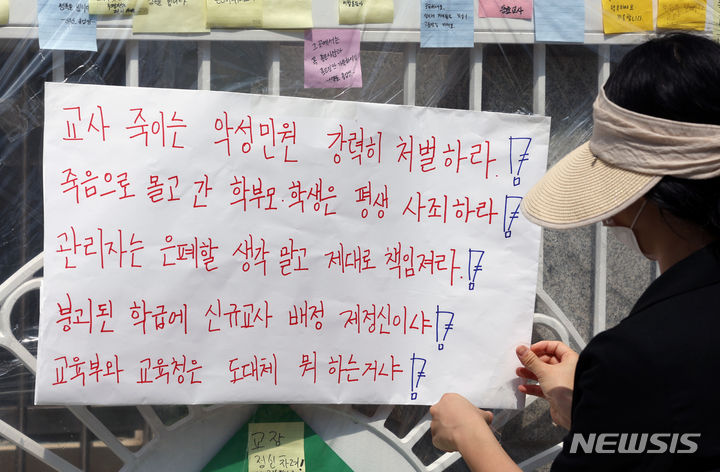 교사 죽이는 악성민원 강력히 처벌하라.!
죽음으로 몰고 간 학부모·학생은 평생 사죄하라!
관리자는 은폐할 생각 말고 제대로 책임져라.!
붕괴된 학급에 신규교사 배정 제정신이냐!
교육부와 교육청은 도대체 뭐 하는거냐!
교장
정신차려!
NEWSIS